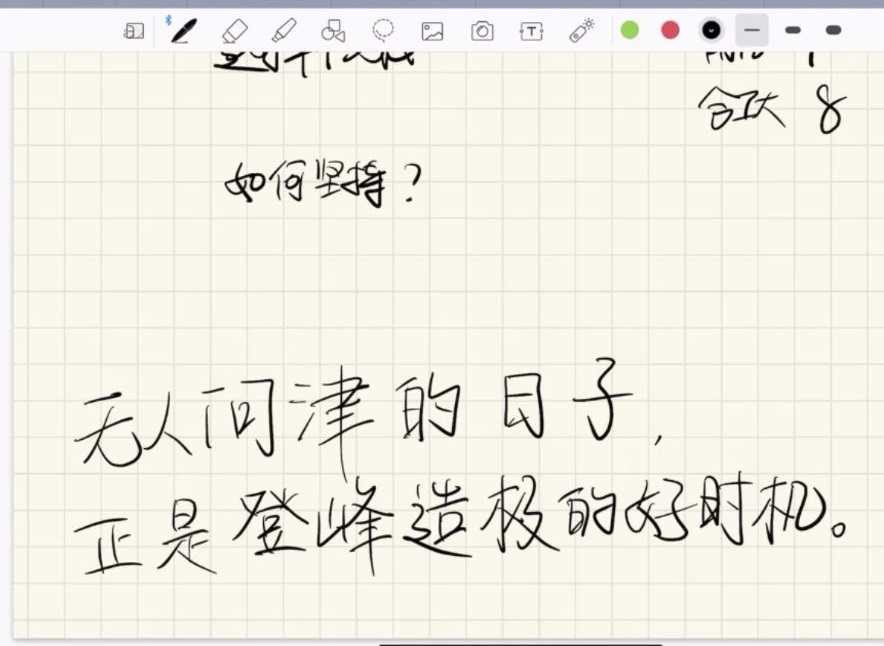 合工大 8
如何坚持？
无人问津的日子，
正是登峰造极的好时机。